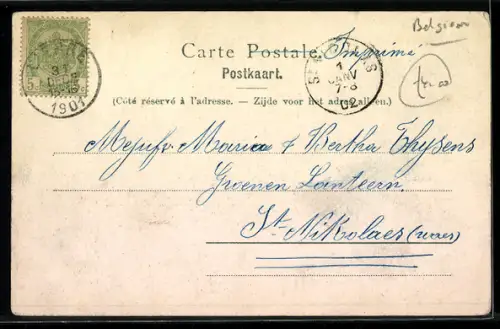 Belgium
Carte Postale. Imprimé
Postkaart.
(Côté réservé à l'adresse. – Zijde voor het adres alleen.)
5 5
31
1901
1
JANV
7-8
02
Mejufr Maria & Bertha Thysens
Groenen Lanteern.
St. Nikolaes (waes)